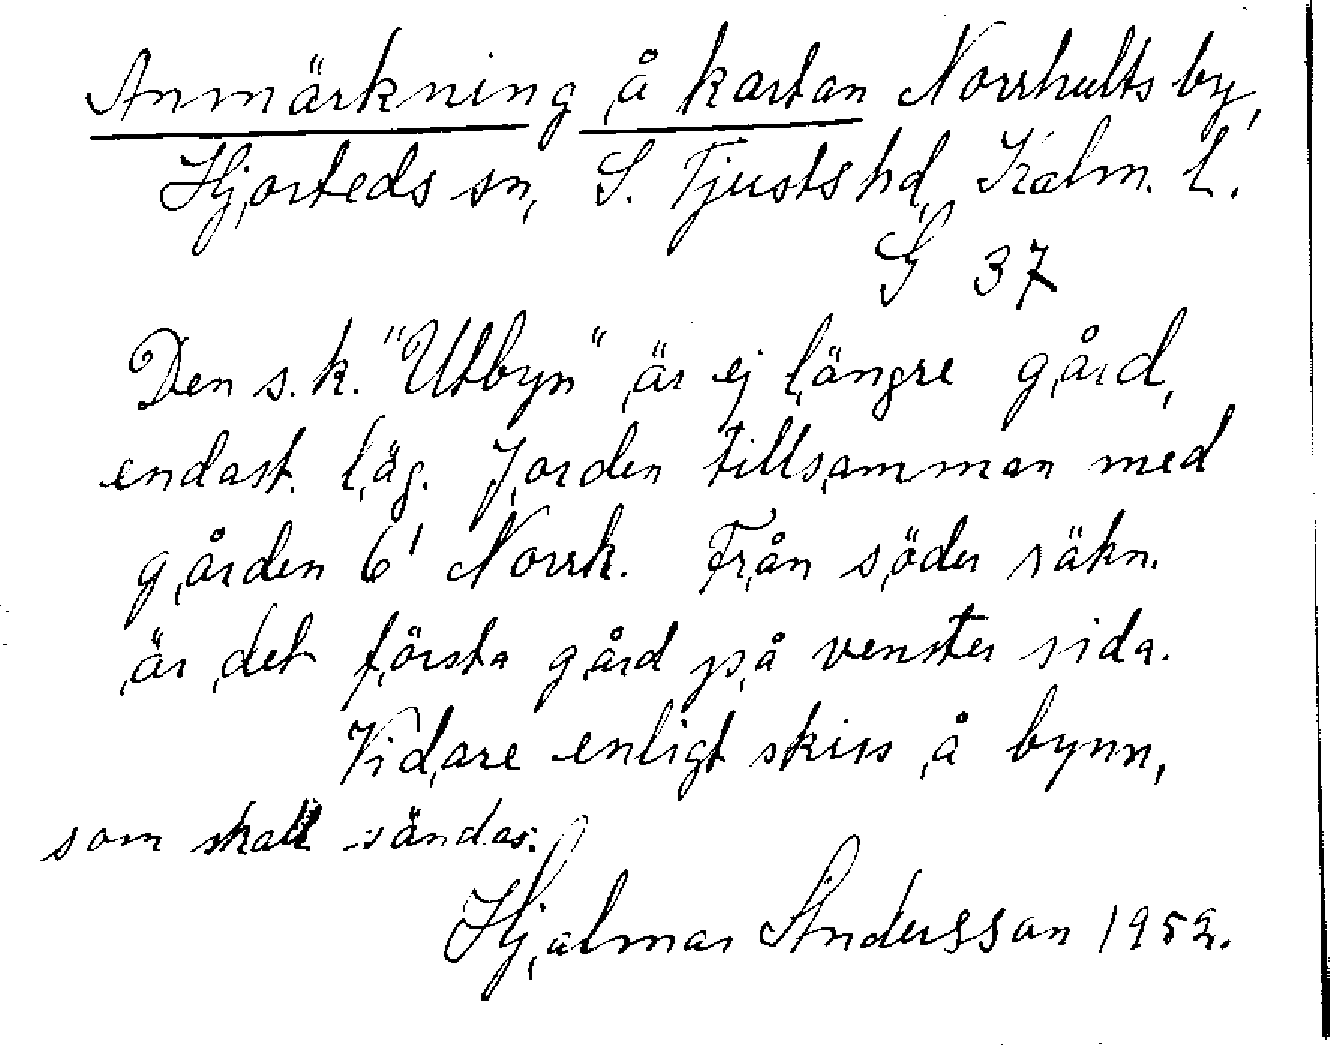 Anmärkning å kartan Norrhults by,
Hjorteds sn, S. Tjusts hd, Kalm. l.
G 37
Den s.k. "Utbyn" är ej längre gård,
endast läg. Jorden tillsamman med
gården 6' Norrh. Från söder räkn.
är det första gård på venster sida.
Vidare enligt skiss å bynn,
som skall sändas.
Hjalmar Andersson 1952.